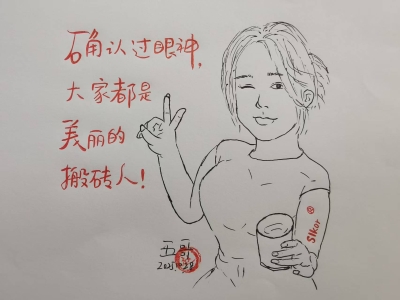 确认过眼神,
大家都是
美丽的
搬砖人!
Slkor ®
五哥